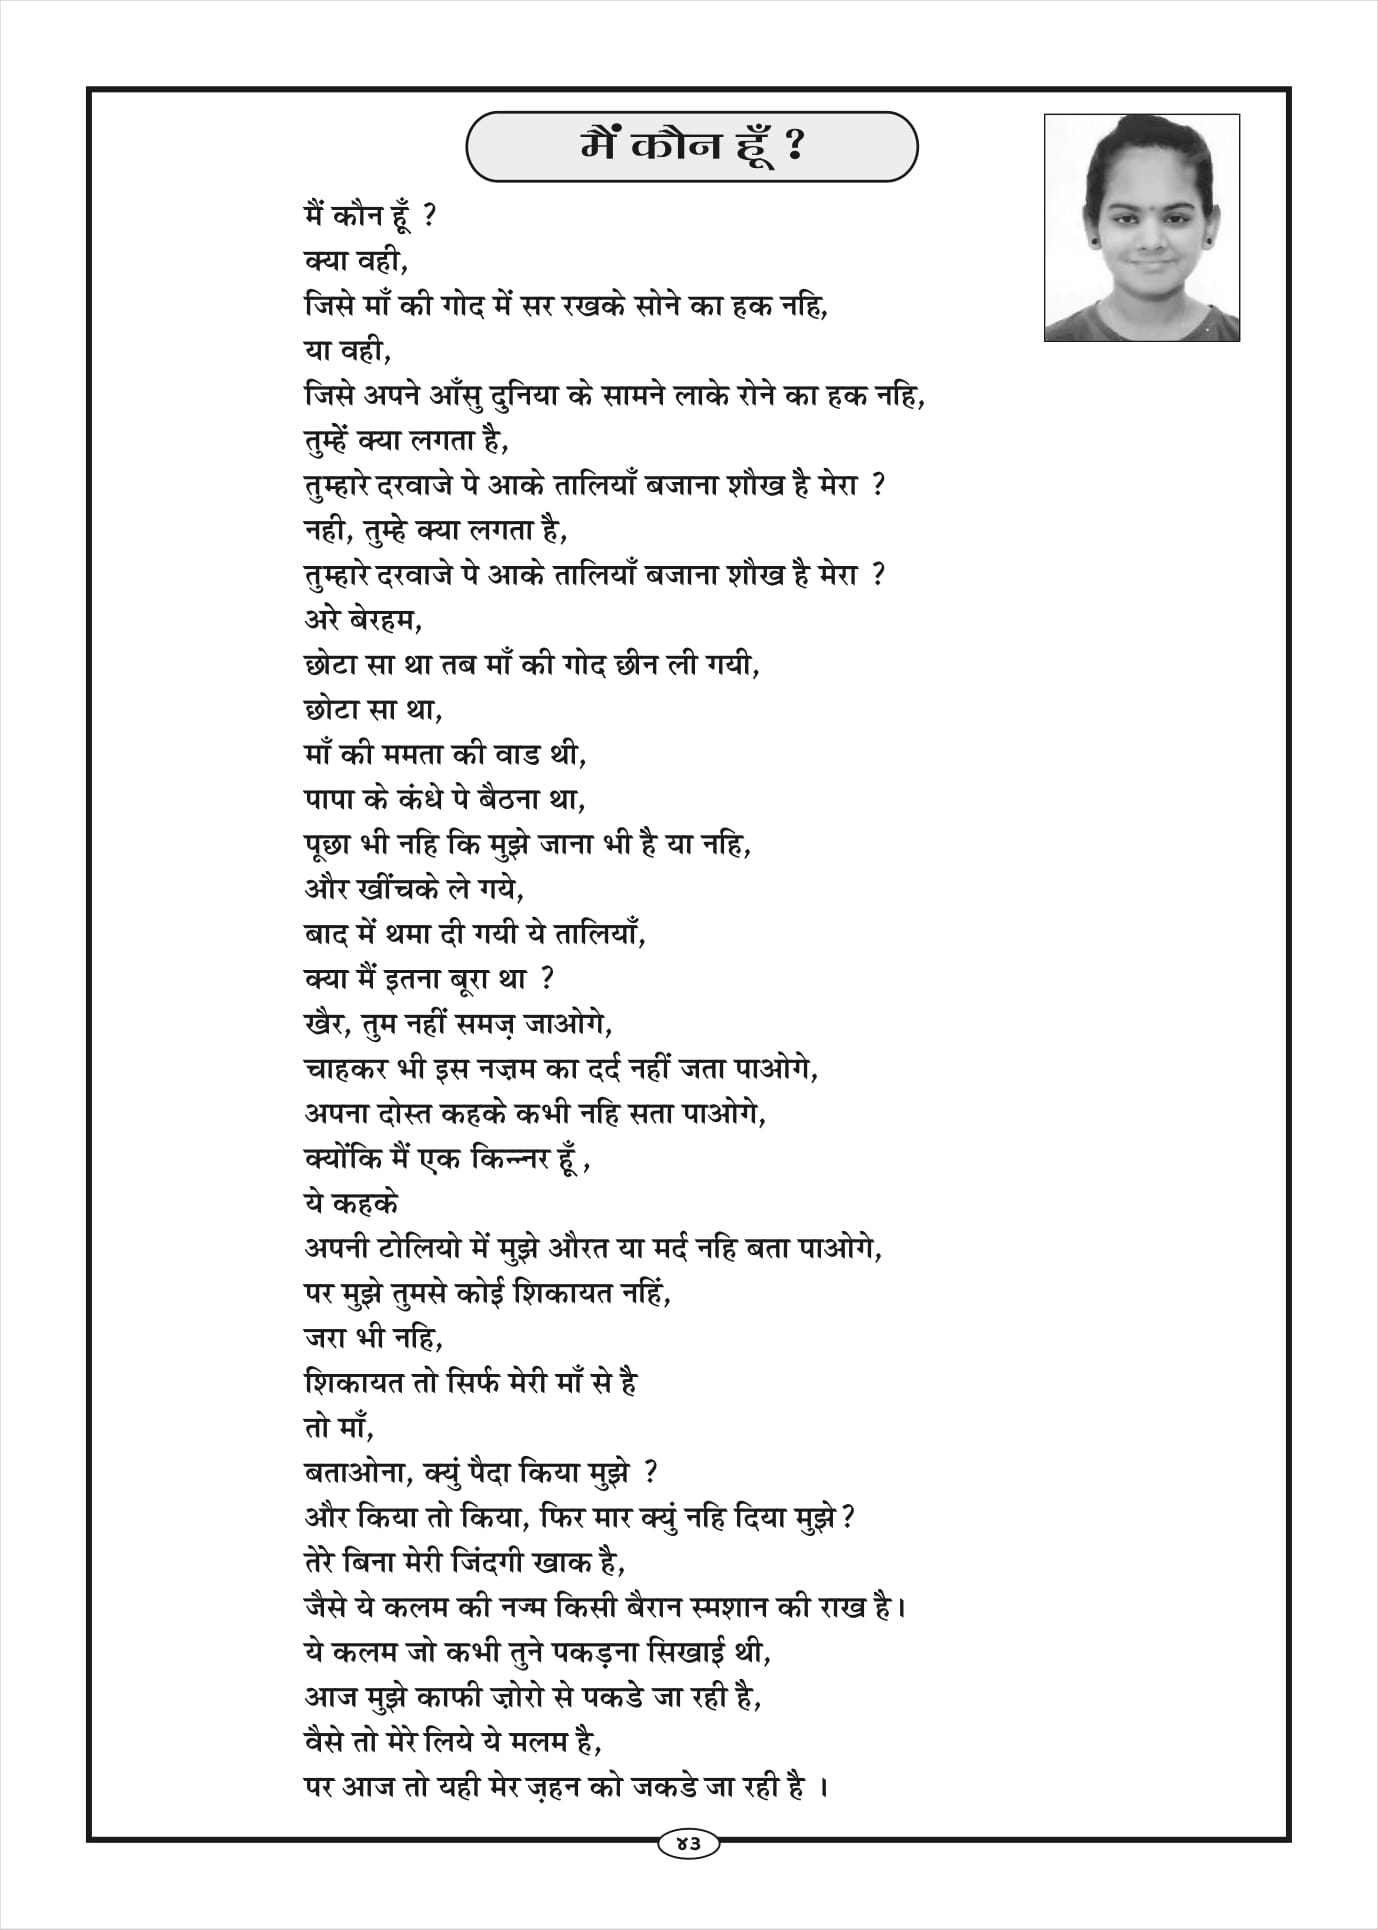 मैं कौन हूँ ?
मैं कौन हूँ ?
क्या वही,
जिसे माँ की गोद में सर रखके सोने का हक नहि,
या वही,
जिसे अपने आँसु दुनिया के सामने लाके रोने का हक नहि,
तुम्हें क्या लगता है,
तुम्हारे दरवाजे पे आके तालियाँ बजाना शौख है मेरा ?
नही, तुम्हे क्या लगता है,
तुम्हारे दरवाजे पे आके तालियाँ बजाना शौख है मेरा ?
अरे बेरहम,
छोटा सा था तब माँ की गोद छीन ली गयी,
छोटा सा था,
माँ की ममता की वाड थी,
पापा के कंधे पे बैठना था,
पूछा भी नहि कि मुझे जाना भी है या नहि,
और खींचके ले गये,
बाद में थमा दी गयी ये तालियाँ,
क्या मैं इतना बूरा था ?
खैर, तुम नहीं समज़ जाओगे,
चाहकर भी इस नज़्म का दर्द नहीं जता पाओगे,
अपना दोस्त कहके कभी नहि सता पाओगे,
क्योंकि मैं एक किन्नर हूँ ,
ये कहके
अपनी टोलियो में मुझे औरत या मर्द नहि बता पाओगे,
पर मुझे तुमसे कोई शिकायत नहिं,
जरा भी नहि,
शिकायत तो सिर्फ मेरी माँ से है
तो माँ,
बताओना, क्युं पैदा किया मुझे ?
और किया तो किया, फिर मार क्युं नहि दिया मुझे ?
तेरे बिना मेरी जिंदगी खाक है,
जैसे ये कलम की नज्म किसी बैरान स्मशान की राख है।
ये कलम जो कभी तुने पकड़ना सिखाई थी,
आज मुझे काफी ज़ोरो से पकडे जा रही है,
वैसे तो मेरे लिये ये मलम है,
पर आज तो यही मेर ज़हन को जकडे जा रही है ।
४३